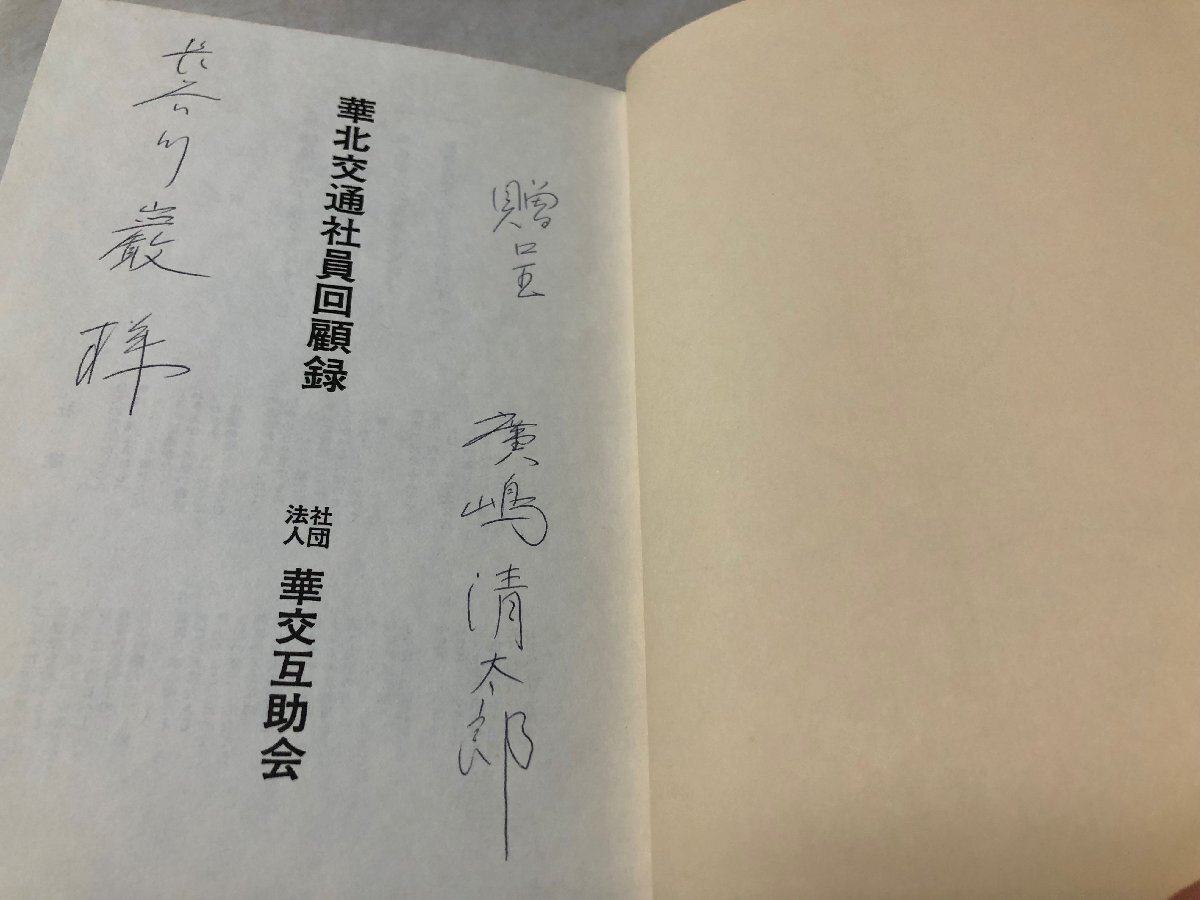 贈呈 廣嶋清太郎
華北交通社員回顧録
社団法人 華交互助会
長谷川巖様